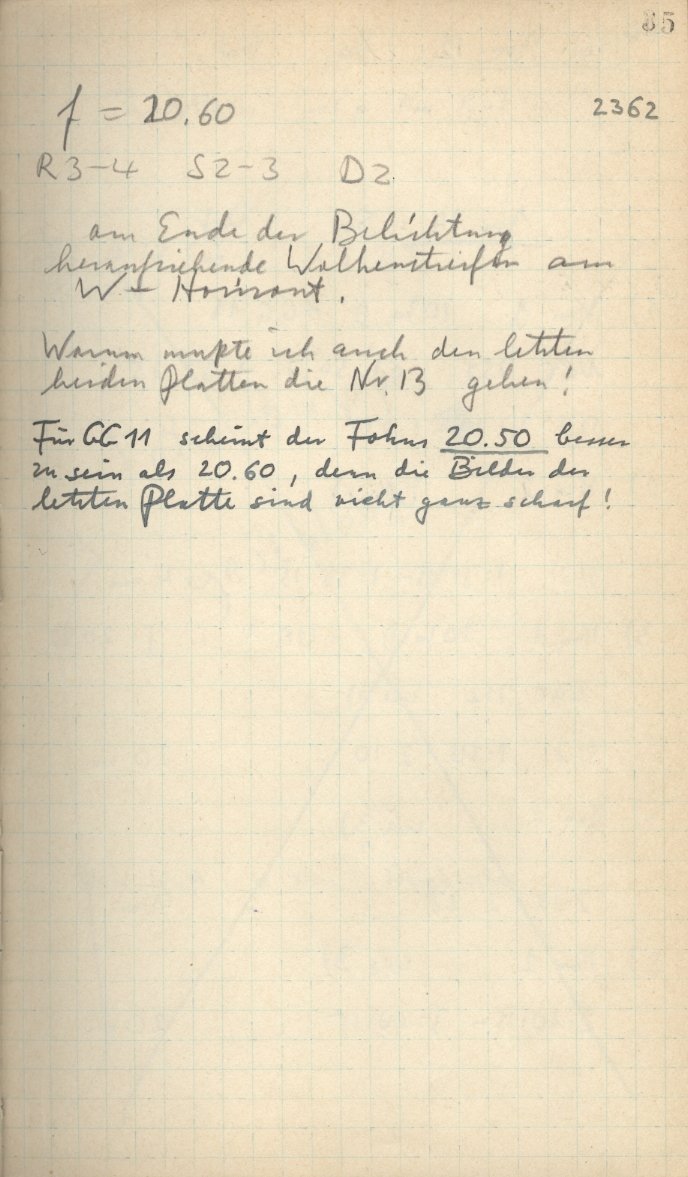 85
f = 20.60 2362
R3-4 S2-3 D2
am Ende der Belichtung
heranziehende Wolkenstreifen am
W-Horizont.
Warum mußte ich auch den letzten
beiden Platten die Nr. 13 geben!
Für GG 11 scheint der Fokus 20.50 besser
zu sein als 20.60, denn die Bilder der
letzten Platte sind nicht ganz scharf!